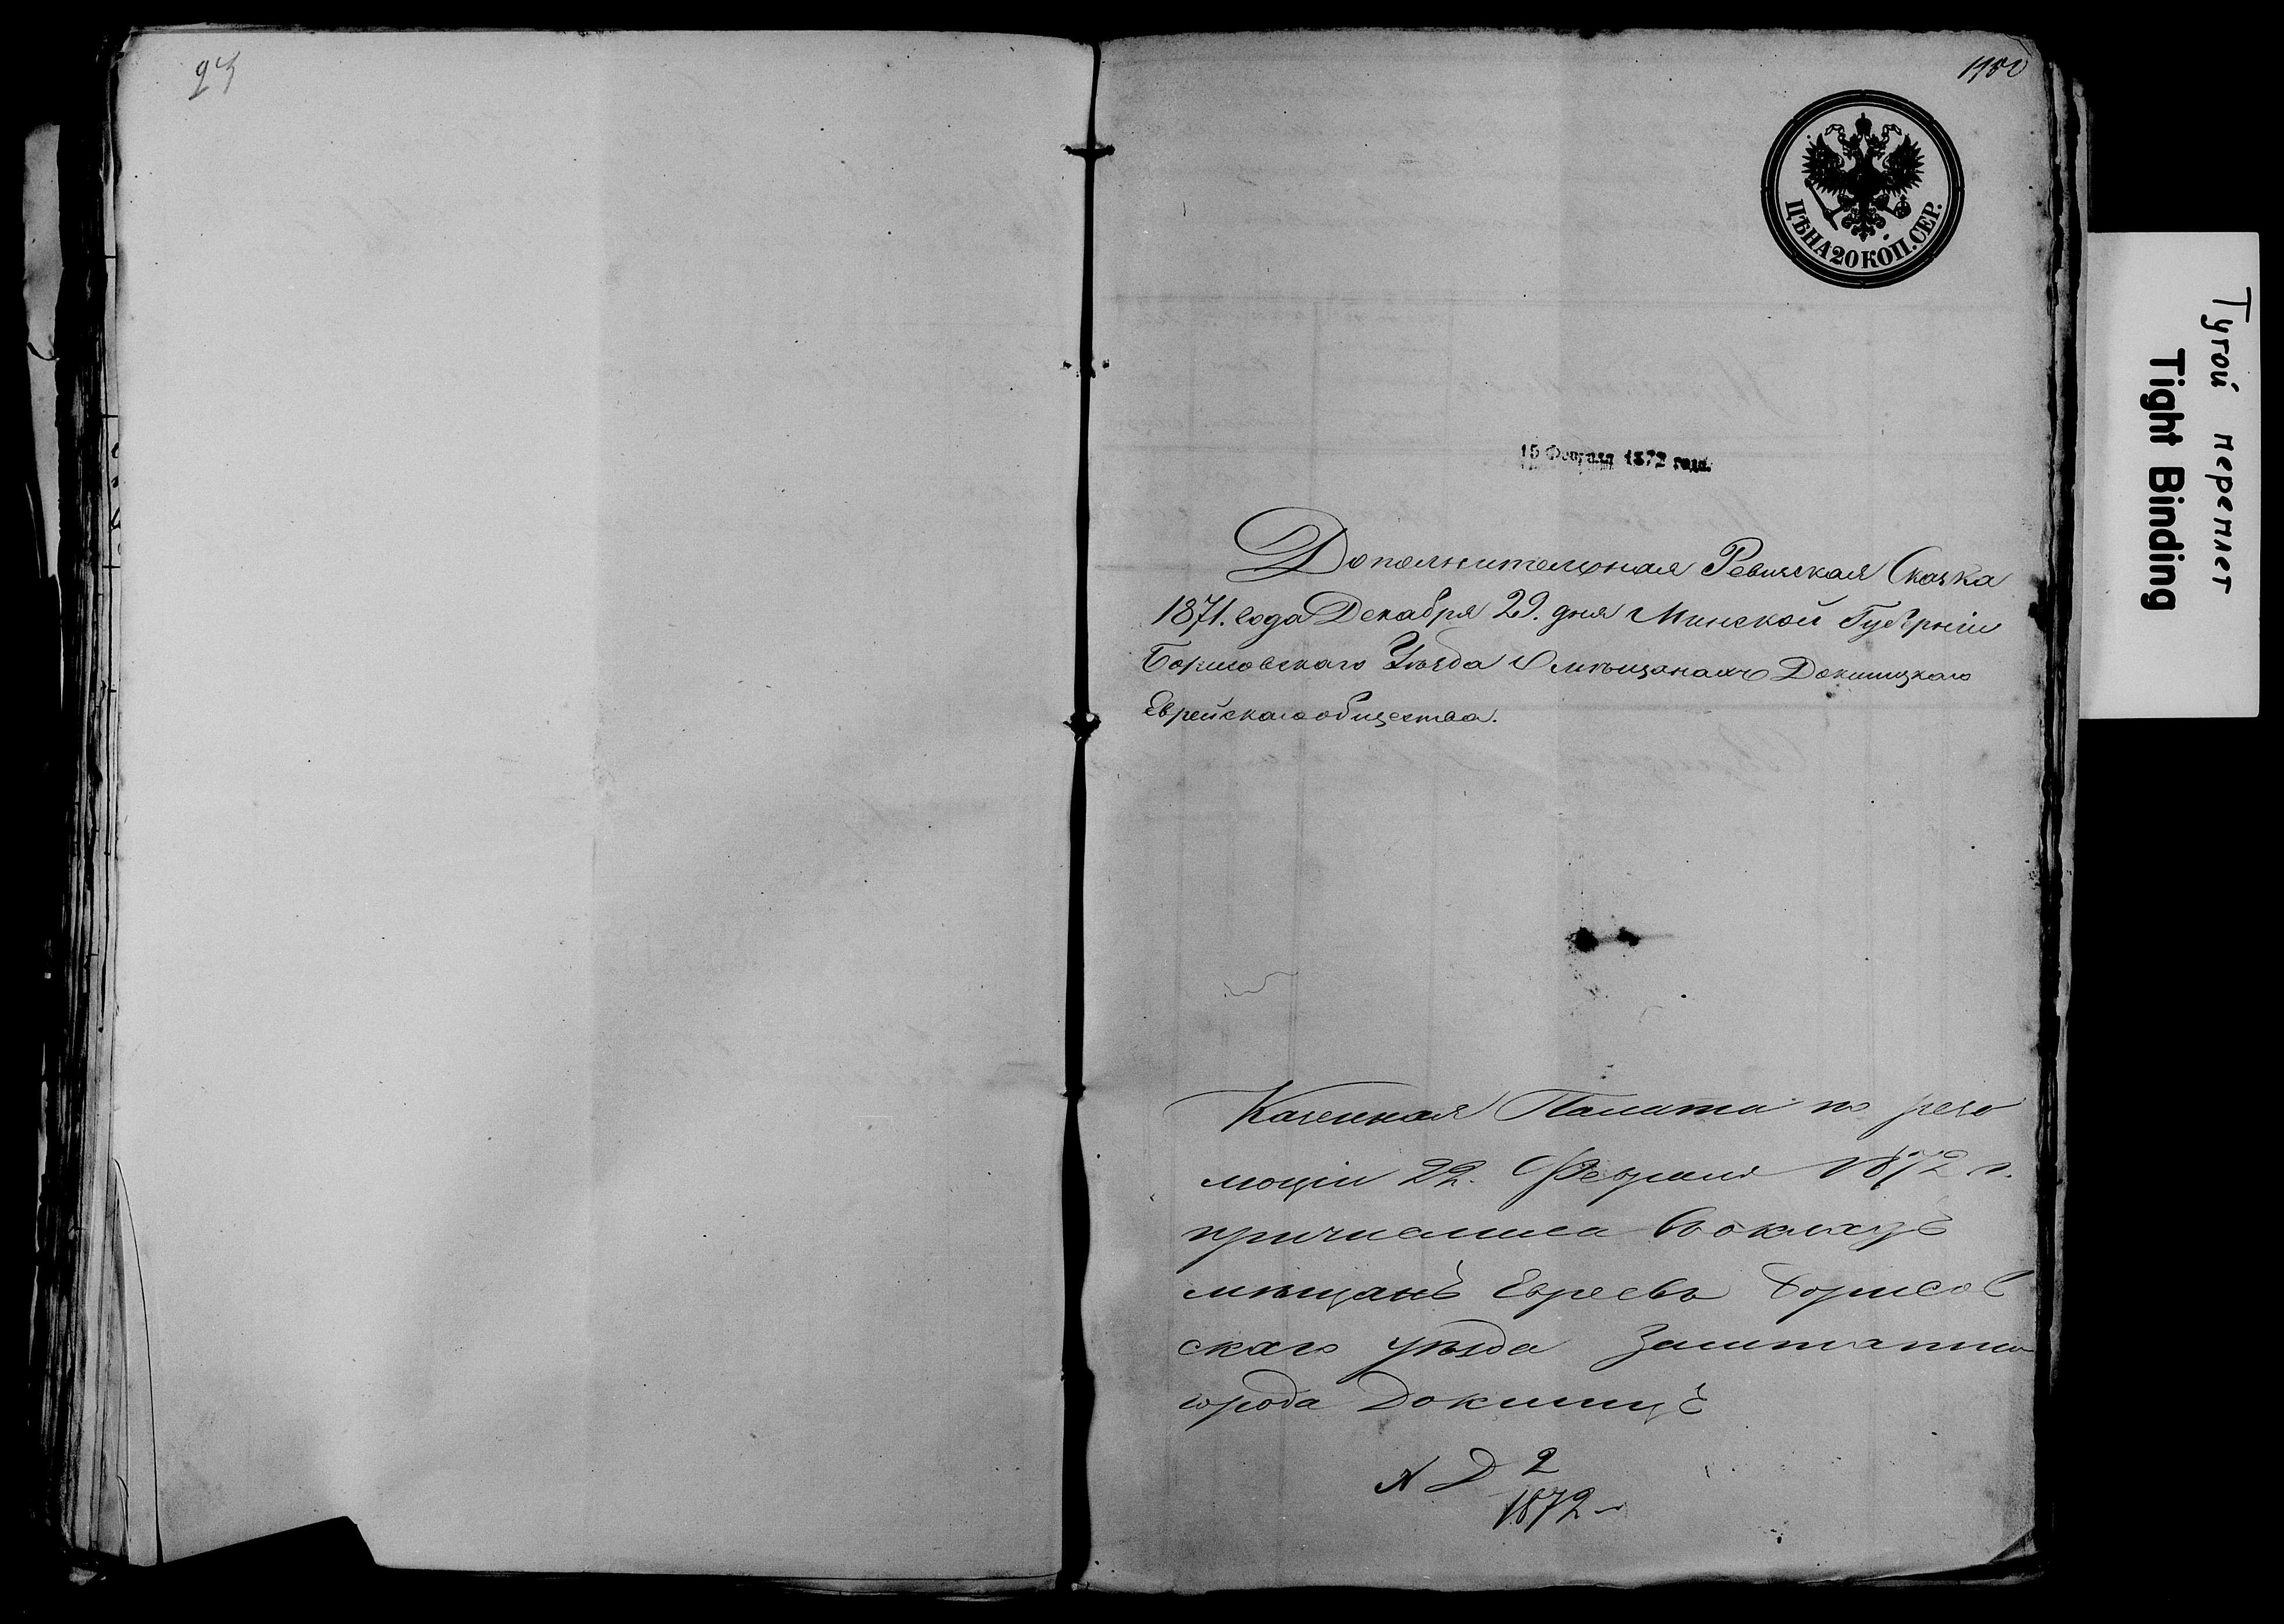 ЦѢНА 20 КОП. СЕР.
15 Февраля 1872 года.
Дополнительная Ревизская Сказка
1871. года Декабря 29. дня Минской Губерніи
Борисовскаго Уѣзда О мѣщанахъ Докшицкаго
Еврейскаго общества.
Казенная Палата по резо
люціи 22. Февраля 1872 г.
причислила въ окладъ
мѣщанъ Евреевъ Борисов
скаго уѣзда Заштатнаго
города Докшицъ
Д 2
1872
Тугой переплет
Tight Binding